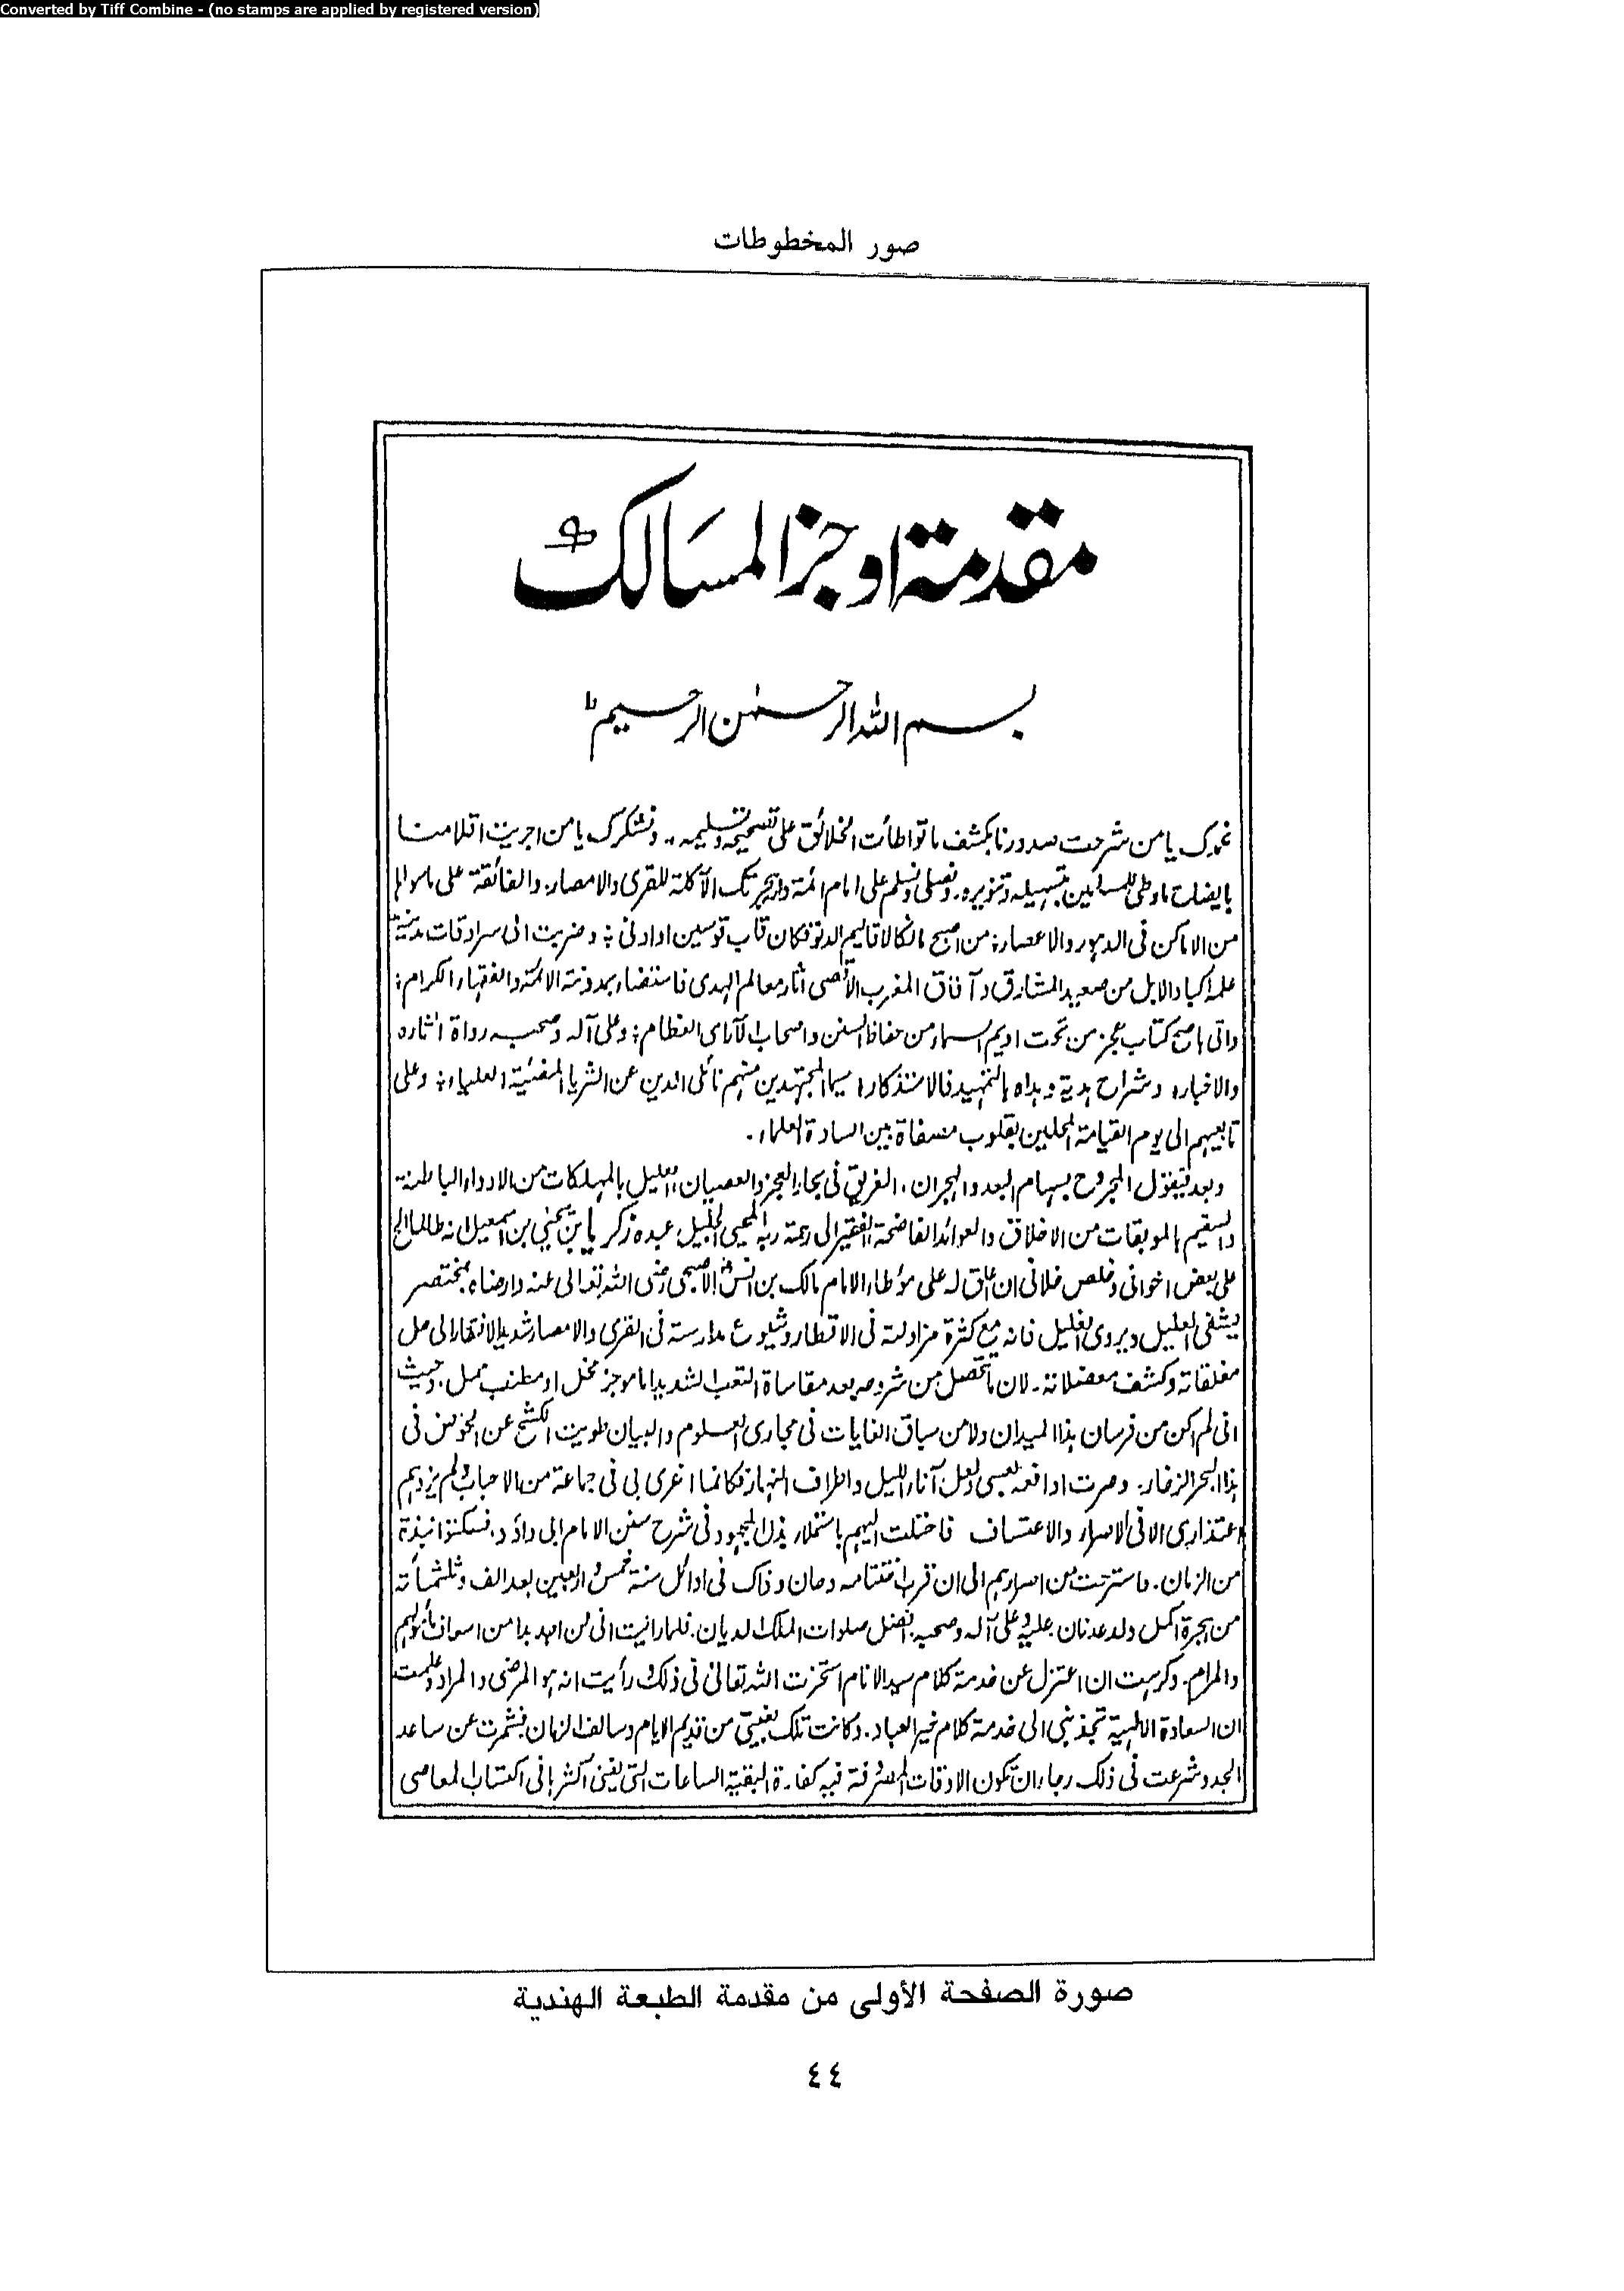 Converted by Tiff Combine - (no stamps are applied by registered version)
صور المخطوطات
مقدمة اوجز المسالك
بسم الله الرحمن الرحيم
نحمدك يا من شرحت صدورنا بكشف ما تواطأت الخلائق على تصحيحه وتسليمه .. ونشكرك يا من اجريت اقلامنا
بايضاح ما وطئ للسالمين بتسهيله وتنويره. ونصلى ونسلم على امام ائمة دار هجر تك الآكلة للقرى والامصار. والفائقة على ما سواها
من الاماكن فى الدهور والاعصار؛ من اصبح مالكا لاقاليم الدنو فكان قاب قوسين او ادنى ؛ وضربت الى سرادقات مدينة
علمه اكباد الابل من صعيد المشارق وآفاق المغرب الأقصى اثار معالم الهدى فاستضاء بمدونته الائمة والفقهاء الكرام؛
واتى باصح كتاب عجز من تحت اديم السماء من حفاظ السنن واصحاب الآراى العظام؛ وعلى آله وصحبه رواة اثاره
والاخبار؛ وشراح هديه وهداه بالتمهيد فالاستذكار؛ سيما المجتهدين منهم نائلى الدين عن الثريا المضيئة العلياء؛ وعلى
تابعيهم الى يوم القيامة المحلين بقلوب مصفاة بين السادة العلماء.
وبعد فيقول المجروح بسهام البعد والهجران. الغريق فى بحار العجز والعصيان العليل بالمهلكات من الادواء الباطنة
والسقيم بالموبقات من الاخلاق والعوائد الفاضحة الفقير الى رحمة ربه المحيى الجليل عبده زكريا بن يحيى بن اسمعيل انه طالما الح
على بعض اخوانى وخلص خلانى ان اعلق له على مؤطا الامام مالك بن انس الأصبحى رضى الله تعالى عنه وارضاه مختصر
يشفى العليل ويروى الغليل فانه مع كثرة مزاولته فى الاقطار وشيوع مدارسته فى القرى والامصار شديد الافتقار الى حل
مغلقاته وكشف معضلاته. لان ما تحصل من شروحه بعد مقاساة التعب الشديد اما موجز مخل او مطنب ممل. وحيث
انى لم اكن من فرسان هذا الميدان ولا من سباق الغايات فى مجارى العلوم والبيان طويت الكشح عن الخوض فى
هذا البحر الزخار. وصرت ادافعه بعسى ولعل آناء الليل واطراف النهار فكانما اغرى بى فى جماعة من الاحباب ولم يزدهم
اعتذارى الا فى الاصرار والاعتساف فاحتلت اليهم باستملاء بذل المجهود فى شرح سنن الامام ابى داؤد. فسكنوا نبذة
من الزمان. ما استرحت من اصرارهم الى ان قرب اختتامه وحان وذاك فى اوائل سنة خمس واربعين بعد الف وثلثمأة
من هجرة اكمل ولد عدنان عليه وعلى آله وصحبه افضل صلوات الملك الديان. فلما رايت انى لن اجد بدا من اسعاف مأمولهم
والمرام. وكرهت ان اعتزل عن خدمة كلام سيد الانام استخرت الله تعالى فى ذلك رأيت انه هو المرضى والمراد وعلمت
ان السعادة الالهية تجذبنى الى خدمة كلام خير العباد. وكانت تلك بغيتى من قديم الايام وسالف الزمان فشمرت عن ساعد
الجد وشرعت فى ذلك رجاء ان تكون الاوقات المصرفة فيه كفارة لبقية الساعات التى يفنى اكثرها فى اكتساب المعاصى
صورة الصفحة الأولى من مقدمة الطبعة الهندية
٤٤